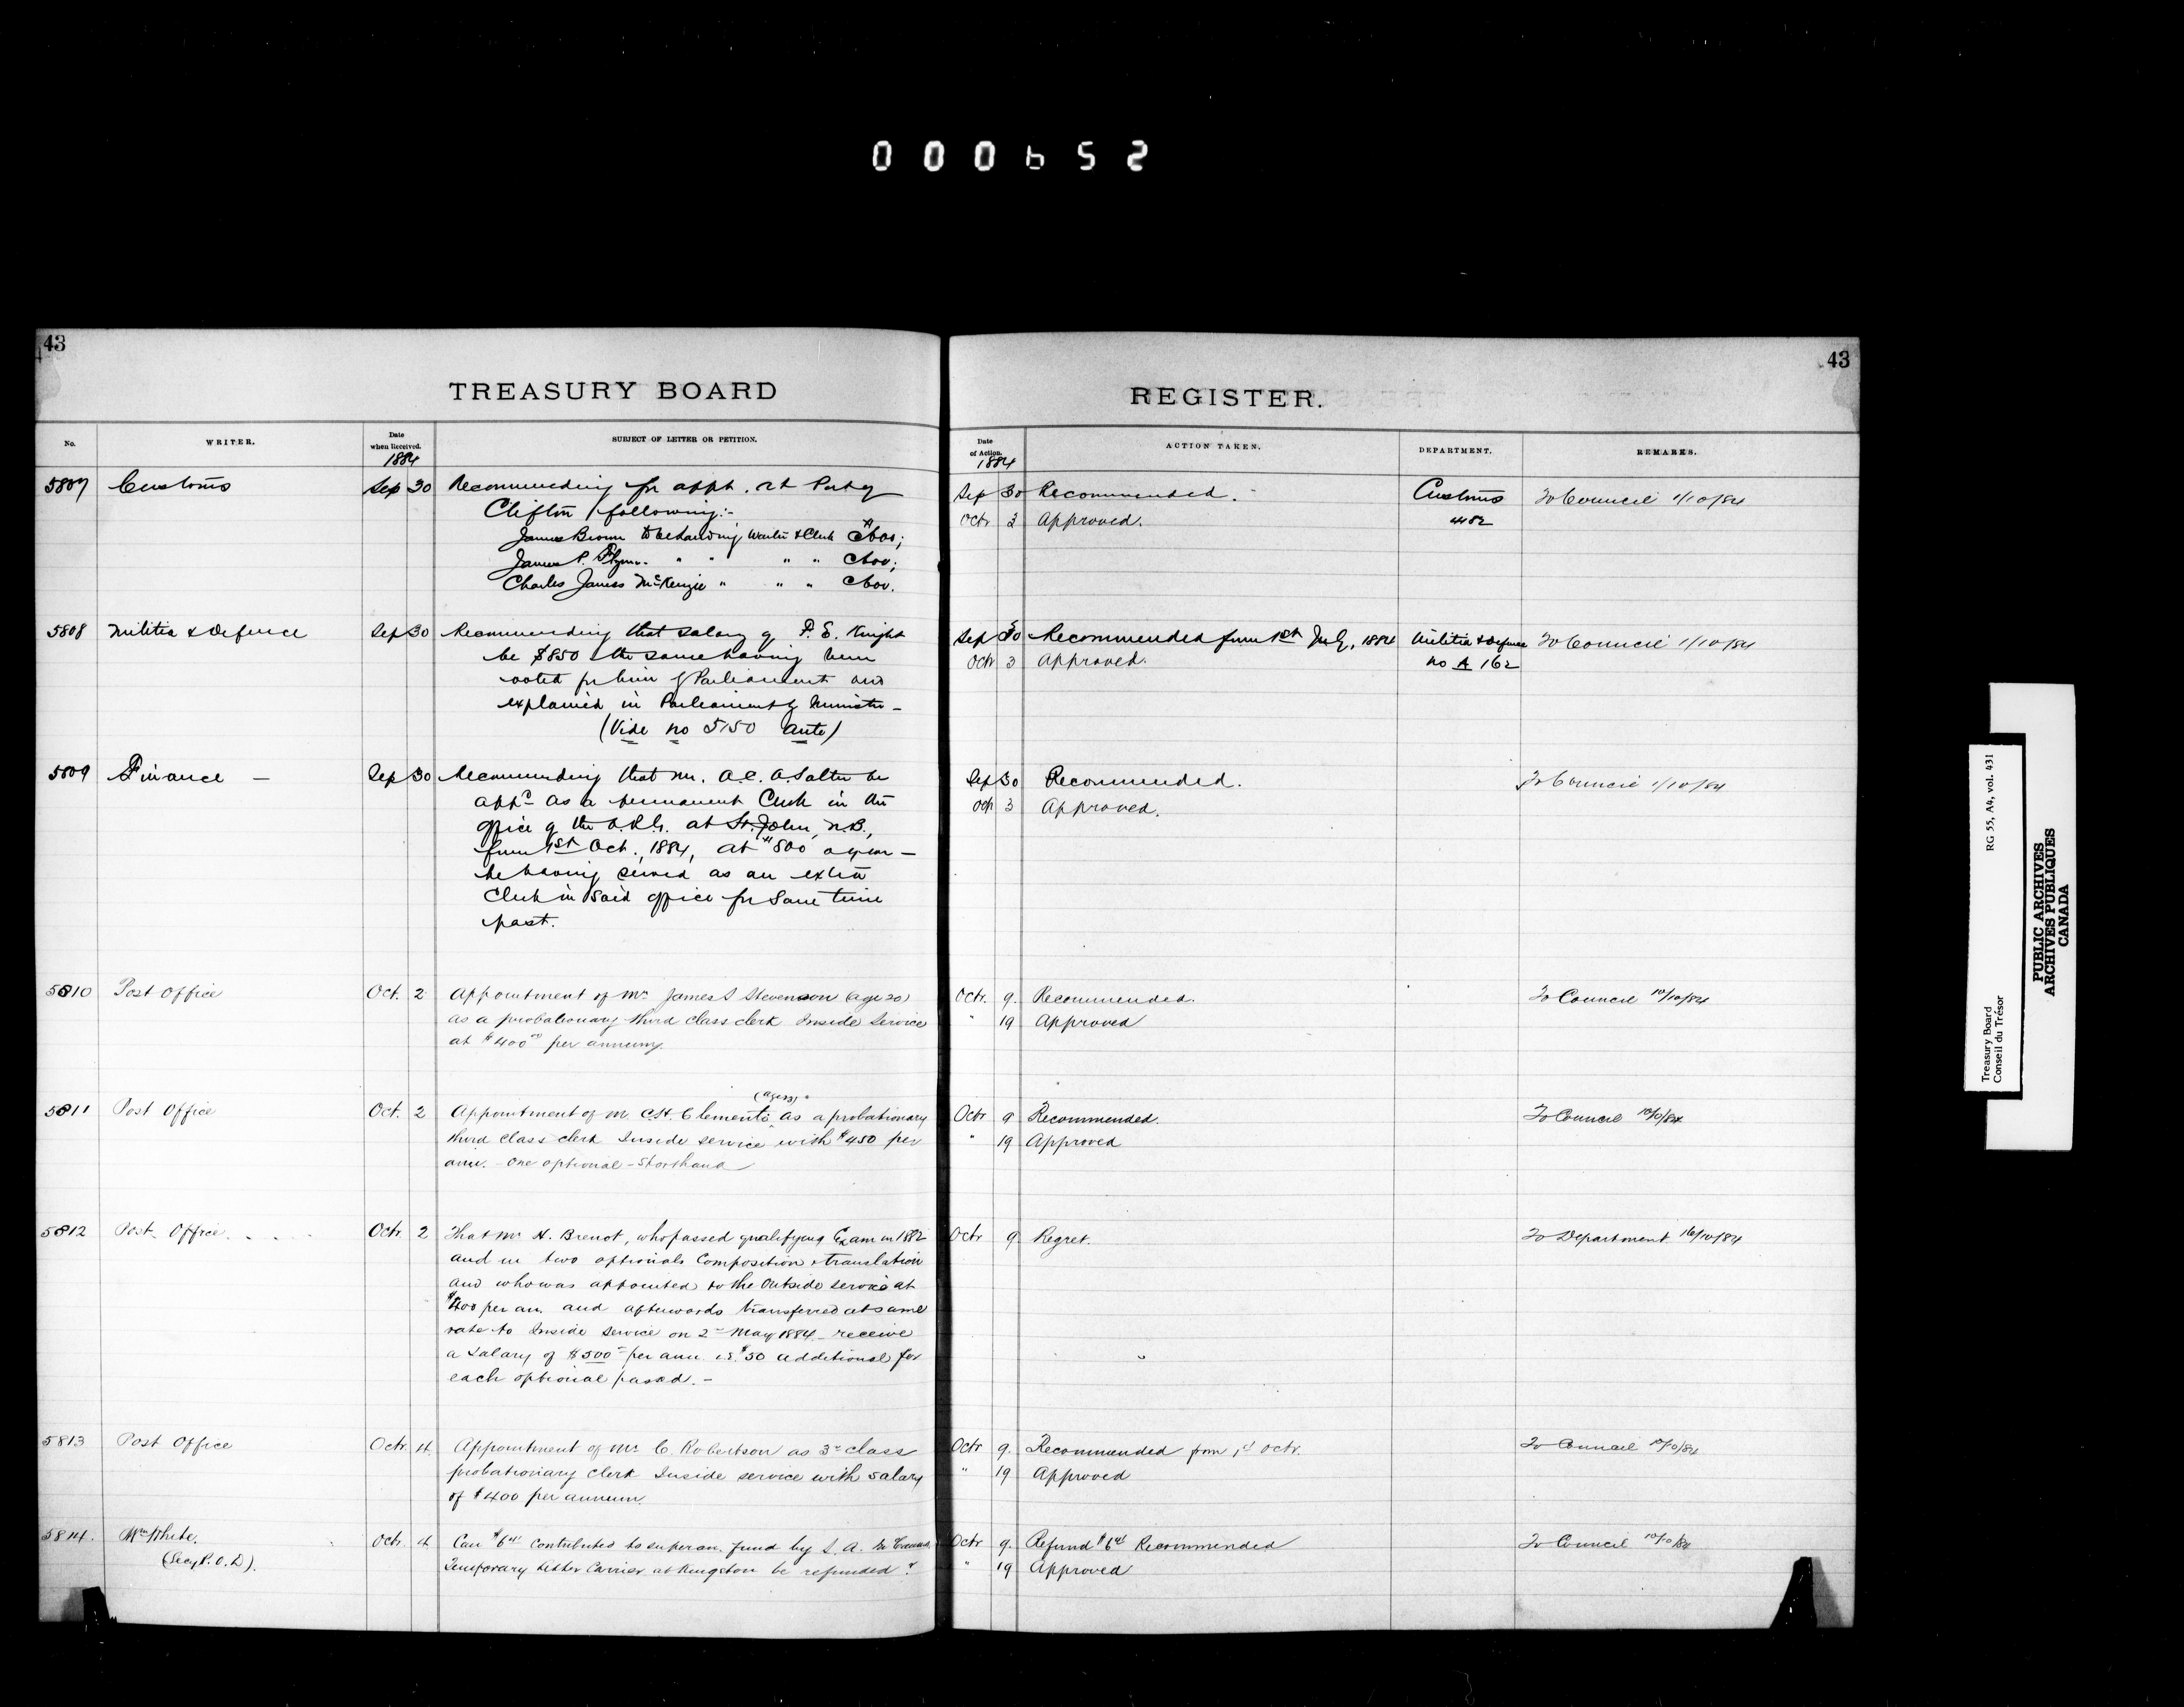 000652
43
TREASURY BOARD
No.
WRITER.
Date when Received.
1884
SUBJECT OF LETTER OR PETITION.
5807 Customs Sep 30 Recommending for appt. at Port of
Clifton following:-
James Brown to be Landing Waiter & Clerk
James P. Flynn " " " "
Charles James McKenzie " " "
5808 Militia & Defence Sep 30 Recommending that salary of P. S. Knight
be $850 the same having been
voted for him by Parliament and
explained in Parliament by Minister -
(Vide no 5150 ante)
5809 Finance - Sep 30 Recommending that Mr. A.C. A Salter be
appd as a permanent Clerk in the
office of the at St. John, N.B.,
from 1st Oct., 1884, at $800 a year -
he having served as an extra
Clerk in said office for some time
past.
5810 Post Office Oct. 2 Appointment of Mr James S Stevenson (age 20)
as a probationary third class clerk Inside Service
at $400 00 per annum.
5811 Post Office Oct. 2 Appointment of Mr C.H. Clements as a probationary
third class clerk Inside service with $450 per
ann. - One optional - Shorthand
5812 Post Office Octr. 2 That Mr H. Brenot, who passed qualifying Exam in 1882
and in two optionals Composition & translation
and who was appointed to the Outside service at
$400 per an. and afterwards transferred at same
rate to Inside Service on 2nd May 1884 - receive
a salary of $500 per ann. i.e. $50 additional for
each optional passed. -
5813 Post Office Octr. 4 Appointment of Mr C. Robertson as 3rd class
probationary Clerk Inside service with salary
of $400 per annum.
5814. Wm White. Octr. 4 Can $6 contributed to superan. fund by S. A.
(Secy P.O.D). Temporary Letter Carrier at Kingston be refunded?
43
REGISTER.
Date of Action.
1884
ACTION TAKEN.
DEPARTMENT.
REMARKS.
Sep 30 Recommended. Customs To Council 1/10/84
Octr 3 Approved. 482
Sep 30 Recommended from 1st July, 1884 Militia & Defence To Council 1/10/84
Octr 3 Approved. no A 162
Sep 30 Recommended. To Council 1/10/84
Oct 3 Approved.
Octr. 9. Recommended. To Council 10/10/84
" 19 Approved
Octr 9 Recommended. To Council 10/10/84
" 19 Approved
Octr 9 Regret. To Department 16/10/84
Octr 9. Recommended from 1st Octr. To Council 10/10/84
" 19 Approved
Octr 9. Refund $6 Recommended To Council 10/10/84
" 19 Approved
Treasury Board RG 55, A4, vol. 431
Conseil du Trésor
PUBLIC ARCHIVES
ARCHIVES PUBLIQUES
CANADA